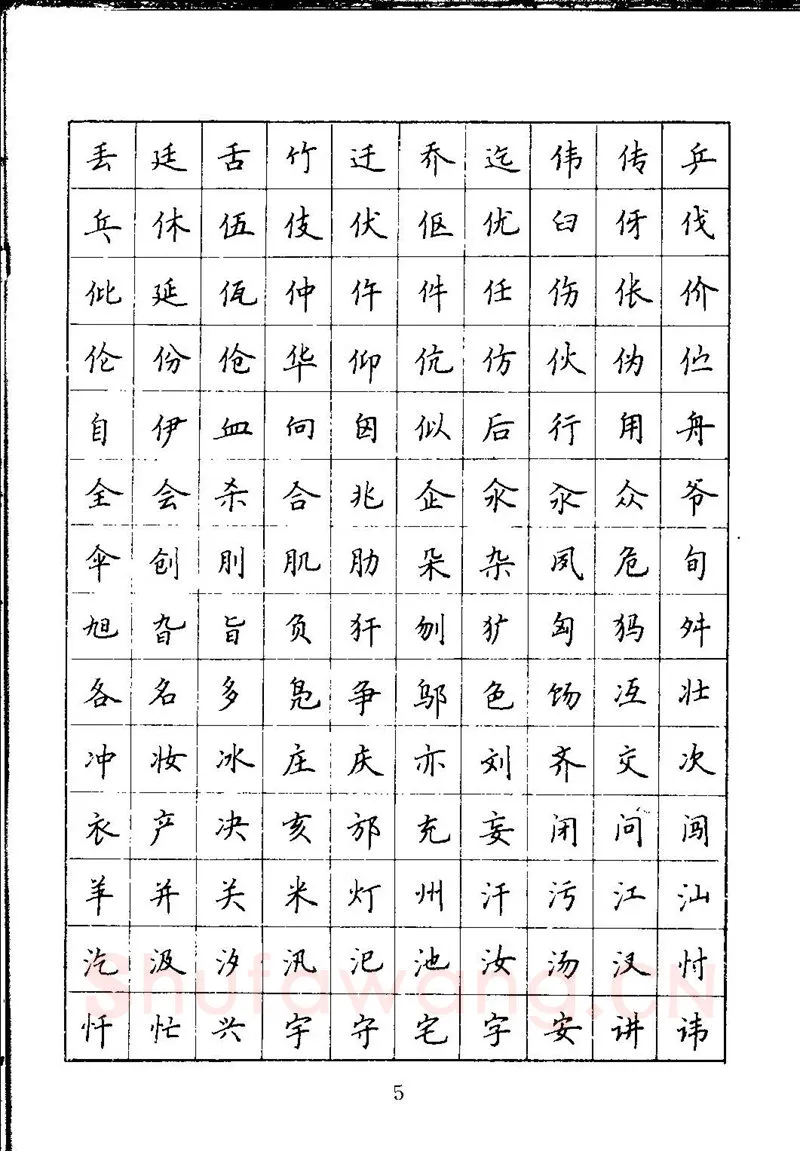 丢 廷 舌 竹 迁 乔 迄 伟 传 乒
乓 休 伍 伎 伏 伛 优 臼 伢 伐
仳 延 佤 仲 仵 件 任 伤 伥 价
伦 份 伧 华 仰 伉 仿 伙 伪 伫
自 伊 血 向 囟 似 后 行 甪 舟
全 会 杀 合 兆 企 汆 氽 众 爷
伞 创 刖 肌 肋 朵 杂 夙 危 旬
旭 旮 旨 负 犴 刎 犷 匈 犸 舛
各 名 多 凫 争 邬 色 饧 冱 壮
冲 妆 冰 庄 庆 亦 刘 齐 交 次
衣 产 决 亥 邡 充 妄 闭 问 闯
羊 并 关 米 灯 州 汗 污 江 汕
汔 汲 汐 汛 汜 池 汝 汤 汊 忖
忏 忙 兴 宇 守 宅 字 安 讲 讳
shufawang.CN
5